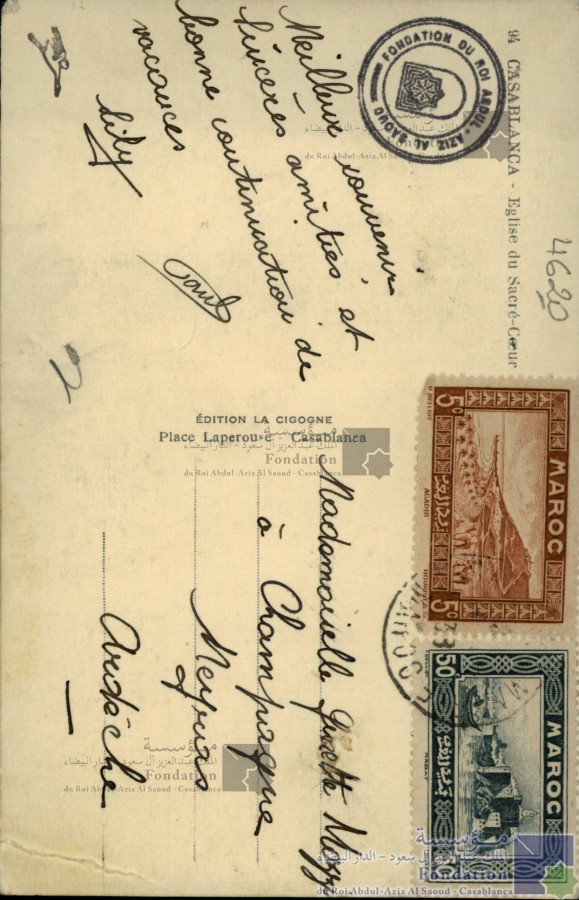 94 CASABLANCA - Eglise du Sacré-Cœur
4620
FONDATION DU ROI ABDUL-AZIZ AL SAOUD
Meilleur souvenir,
Sincères amitiés, et
bonne continuation de
vacances
Lily
Paul
ÉDITION LA CIGOGNE
Place Laperouse Casablanca
Mademoiselle Ginette
à Champagne
Meyras
Ardèche
MAROC
5c
5c
AGADIR
MAROC
50c
RABAT
مؤسسة
الملك عبد العزيز آل سعود - الدار البيضاء
Fondation
du Roi Abdul-Aziz Al Saoud - Casablanca
مؤسسة
الملك عبد العزيز آل سعود - الدار البيضاء
Fondation
du Roi Abdul-Aziz Al Saoud - Casablanca
مؤسسة
الملك عبد العزيز آل سعود - الدار البيضاء
Fondation
du Roi Abdul-Aziz Al Saoud - Casablanca